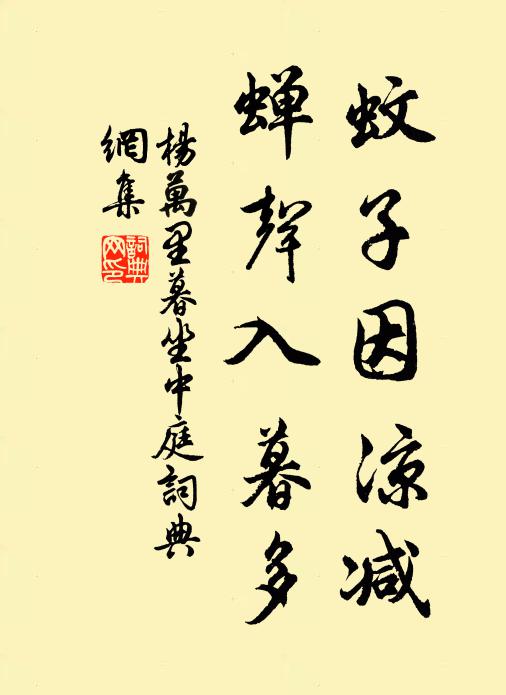 蚊子因涼减
蝉聲入暮多
楊萬里暮坐中庭詞典
網集
詞典网印